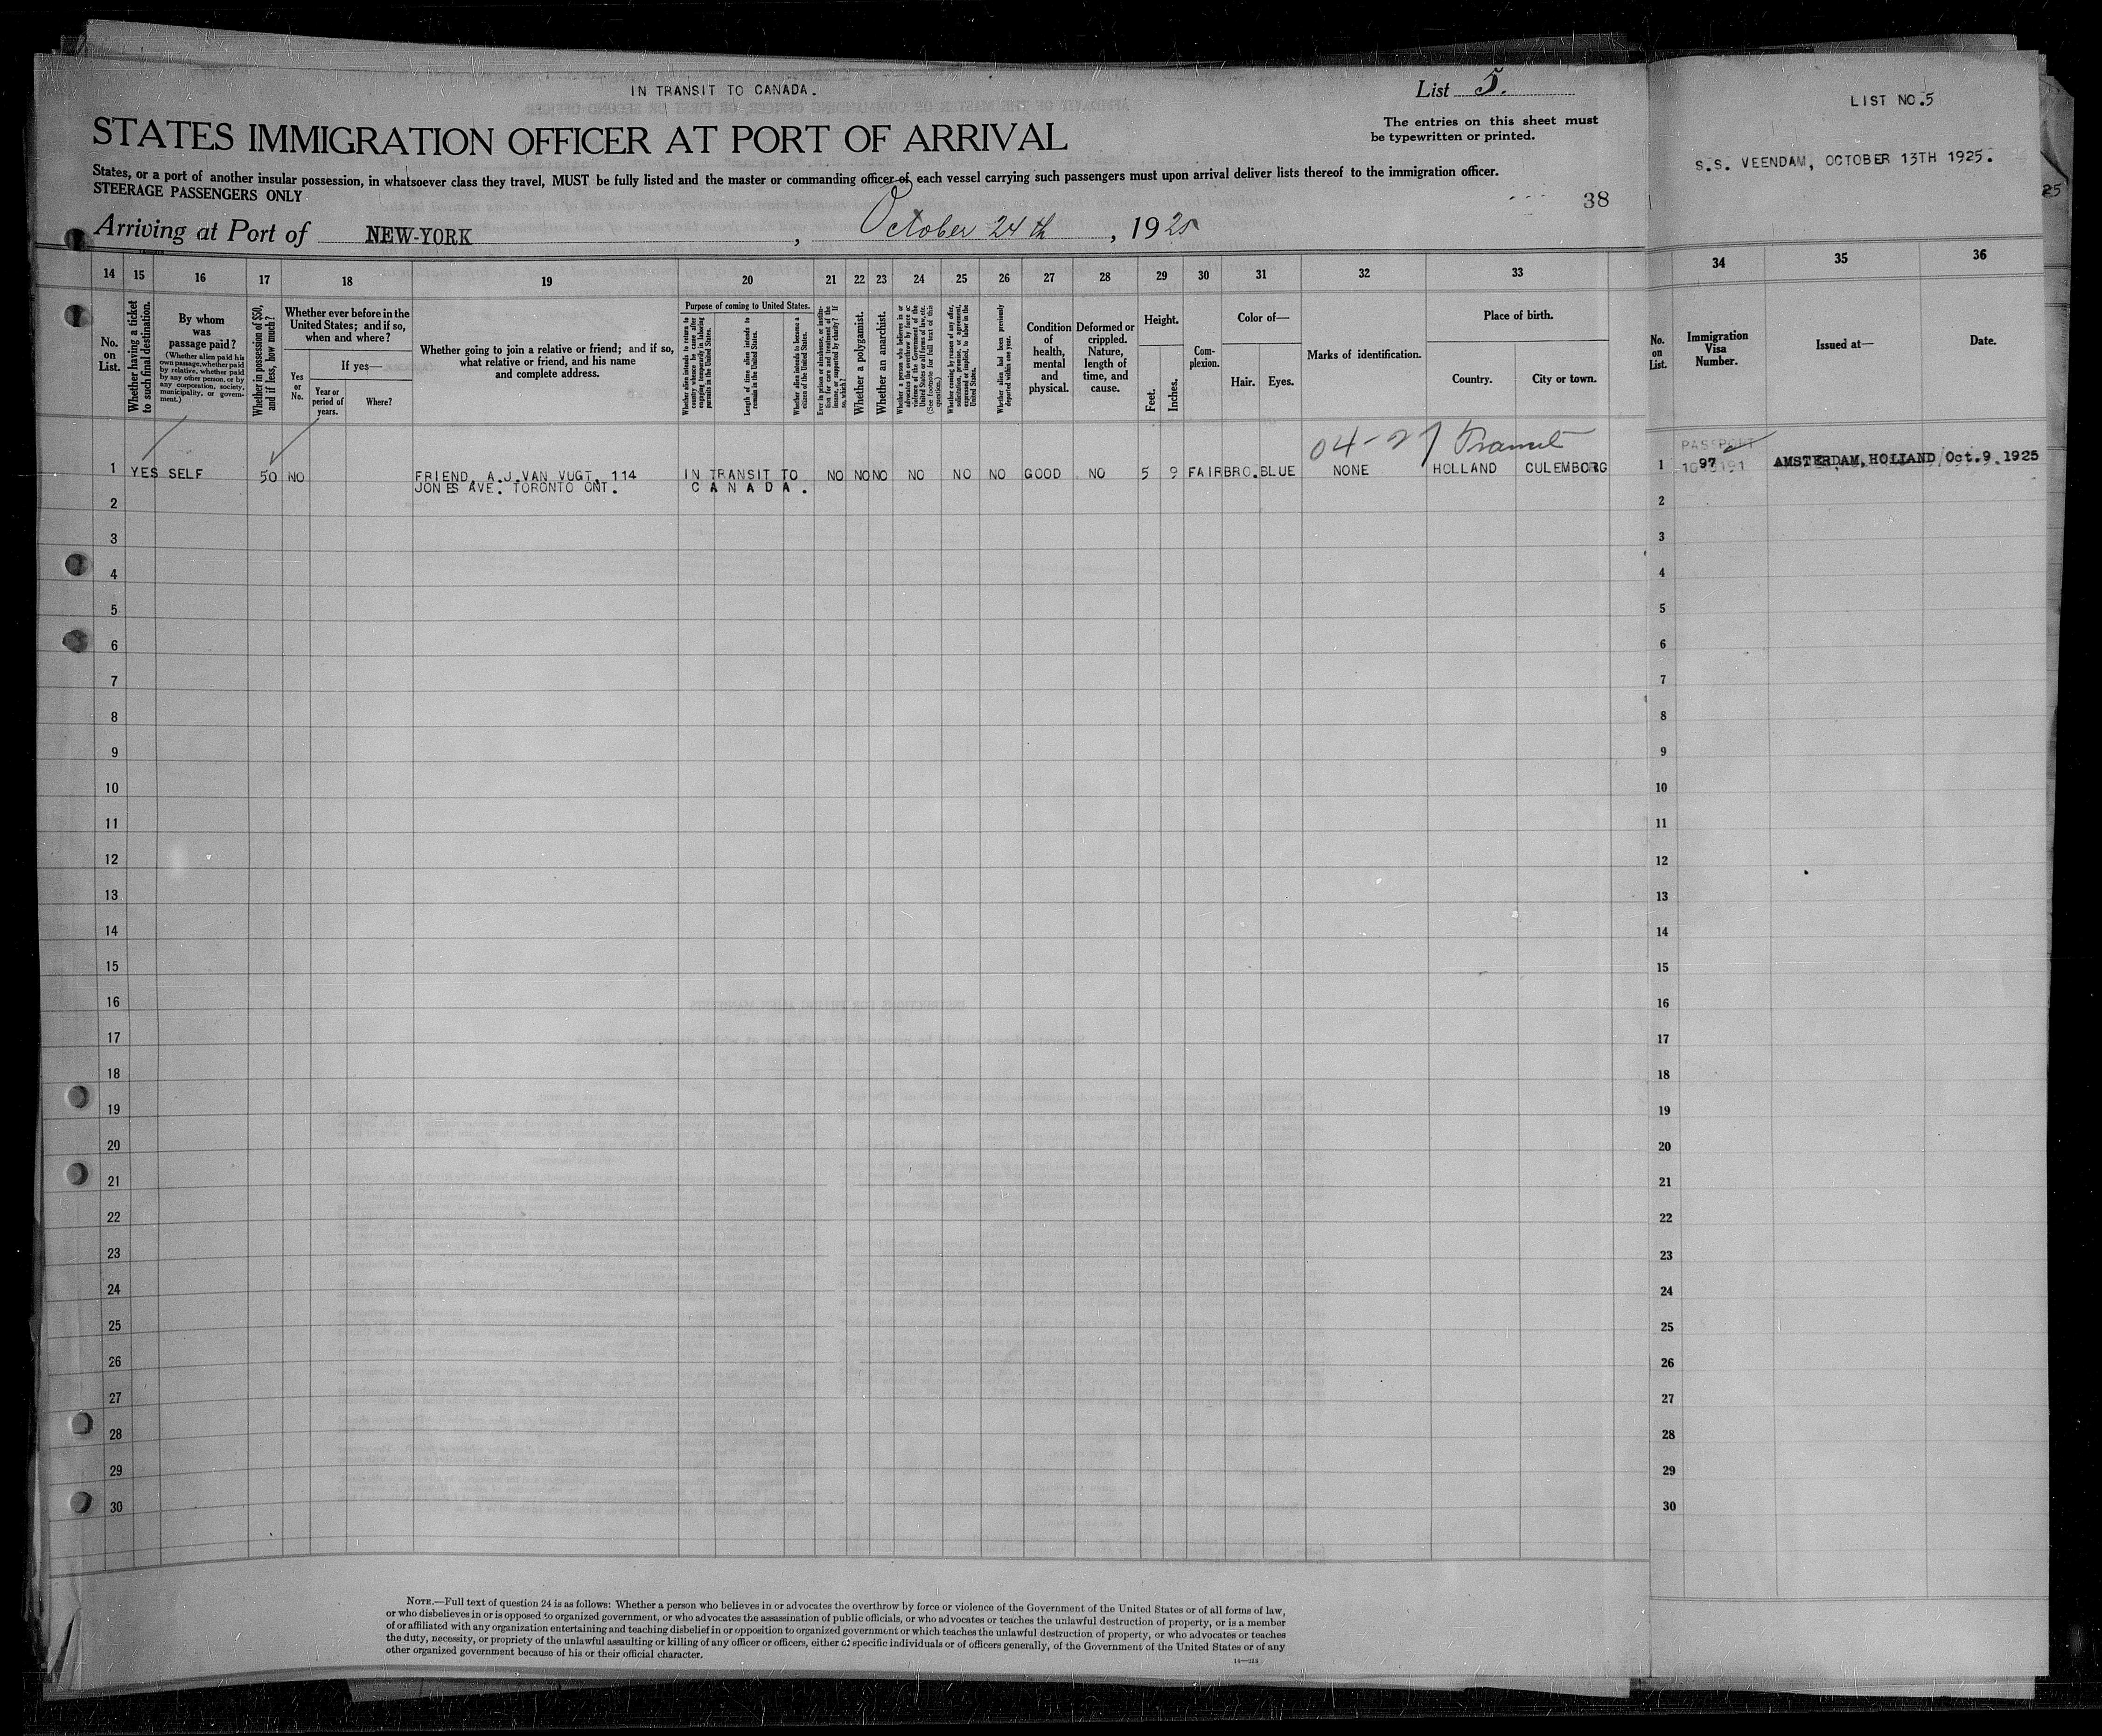 IN TRANSIT TO CANADA.
List 5.
STATES IMMIGRATION OFFICER AT PORT OF ARRIVAL
The entries on this sheet must
be typewritten or printed.
States, or a port of another insular possession, in whatsoever class they travel, MUST be fully listed and the master or commanding officer of each vessel carrying such passengers must upon arrival deliver lists thereof to the immigration officer.
STEERAGE PASSENGERS ONLY
38
Arriving at Port of NEW-YORK, October 24th, 1925
LIST NO.5
S.S. VEENDAM, OCTOBER 13TH 1925.
25
14 15 16 17 18 19 20 21 22 23 24 25 26 27 28 29 30 31 32 33
34 35 36
No.
on
List.
Whether having a ticket
to such final destination.
By whom
was
passage paid?
(Whether alien paid his
own passage, whether paid
by relative, whether paid
by any other person, or by
any corporation, society,
municipality, or govern-
ment.)
Whether in possession of $50,
and if less, how much?
Whether ever before in the
United States; and if so,
when and where?
Yes
or
No.
If yes—
Year or
period of
years.
Where?
Whether going to join a relative or friend; and if so,
what relative or friend, and his name
and complete address.
Purpose of coming to United States.
Whether alien intends to return to
country whence he came after
engaging temporarily in laboring
pursuits in the United States.
Length of time alien intends to
remain in the United States.
Whether alien intends to become a
citizen of the United States.
Ever in prison or almshouse, or institu-
tion for care and treatment of the
insane, or supported by charity? If
so, which?
Whether a polygamist.
Whether an anarchist.
Whether a person who believes in or
advocates the overthrow by force or
violence of the Government of the
United States or all forms of law, etc.
(See footnote for full text of this
question.)
Whether coming by reason of any offer,
solicitation, promise, or agreement,
expressed or implied, to labor in the
United States.
Whether alien had been previously
deported within one year.
Condition
of
health,
mental
and
physical.
Deformed or
crippled.
Nature,
length of
time, and
cause.
Height.
Feet.
Inches.
Com-
plexion.
Color of—
Hair.
Eyes.
Marks of identification.
Place of birth.
Country.
City or town.
No.
on
List.
Immigration
Visa
Number.
Issued at—
Date.
04-27 Transit
PASSPORT
1 YES SELF 50 NO FRIEND, A.J.VAN VUGT, 114 IN TRANSIT TO NO NO NO NO NO NO GOOD NO 5 9 FAIR BRO. BLUE NONE HOLLAND CULEMBORG
JONES AVE. TORONTO ONT. CANADA.
1 97 AMSTERDAM, HOLLAND Oct.9.1925
2 2
3 3
4 4
5 5
6 6
7 7
8 8
9 9
10 10
11 11
12 12
13 13
14 14
15 15
16 16
17 17
18 18
19 19
20 20
21 21
22 22
23 23
24 24
25 25
26 26
27 27
28 28
29 29
30 30
NOTE.—Full text of question 24 is as follows: Whether a person who believes in or advocates the overthrow by force or violence of the Government of the United States or of all forms of law,
or who disbelieves in or is opposed to organized government, or who advocates the assassination of public officials, or who advocates or teaches the unlawful destruction of property, or is a member
of or affiliated with any organization entertaining and teaching disbelief in or opposition to organized government or which teaches the unlawful destruction of property, or who advocates or teaches
the duty, necessity, or propriety of the unlawful assaulting or killing of any officer or officers, either of specific individuals or of officers generally, of the Government of the United States or of any
other organized government because of his or their official character.
14—313